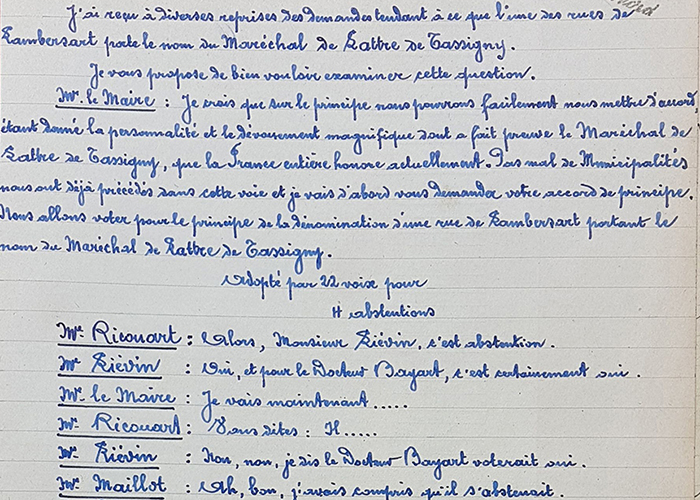 J'ai reçu à diverses reprises des demandes tendant à ce que l'une des rues de
Lambersart porte le nom du Maréchal de Lattre de Tassigny.
Je vous propose de bien vouloir examiner cette question.
Mr. le Maire : Je crois que sur le principe nous pourrons facilement nous mettre d'accord,
étant donné la personnalité et le dévouement magnifique dont a fait preuve le Maréchal de
Lattre de Tassigny, que la France entière honore actuellement. Pas mal de Municipalités
nous ont déjà précédés dans cette voie et je vais d'abord vous demander votre accord de principe.
Nous allons voter pour le principe de la dénomination d'une rue de Lambersart portant le
nom du Maréchal de Lattre de Tassigny.
Adopté par 22 voix pour
4 abstentions
Mr. Ricouart : Alors, Monsieur Liévin, c'est abstention.
Mr. Liévin : Oui, et pour le Docteur Bayart, c'est certainement oui.
Mr. le Maire : Je vais maintenant .....
Mr. Ricouart : Vous dites : 4.....
Mr. Liévin : Non, non, je dis le Docteur Bayart voterait oui.
Mr. Maillot : Ah, bon, j'avais compris qu'il s'abstenait.